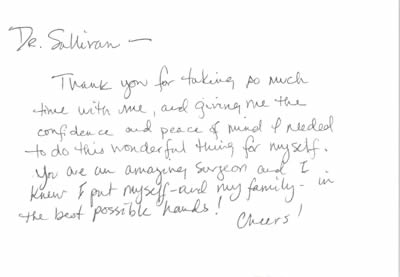 Dr. Sullivan —
Thank you for taking so much
time with me, and giving me the
confidence and peace of mind I needed
to do this wonderful thing for myself.
You are an amazing surgeon and I
knew I put myself - and my family - in
the best possible hands!
Cheers!